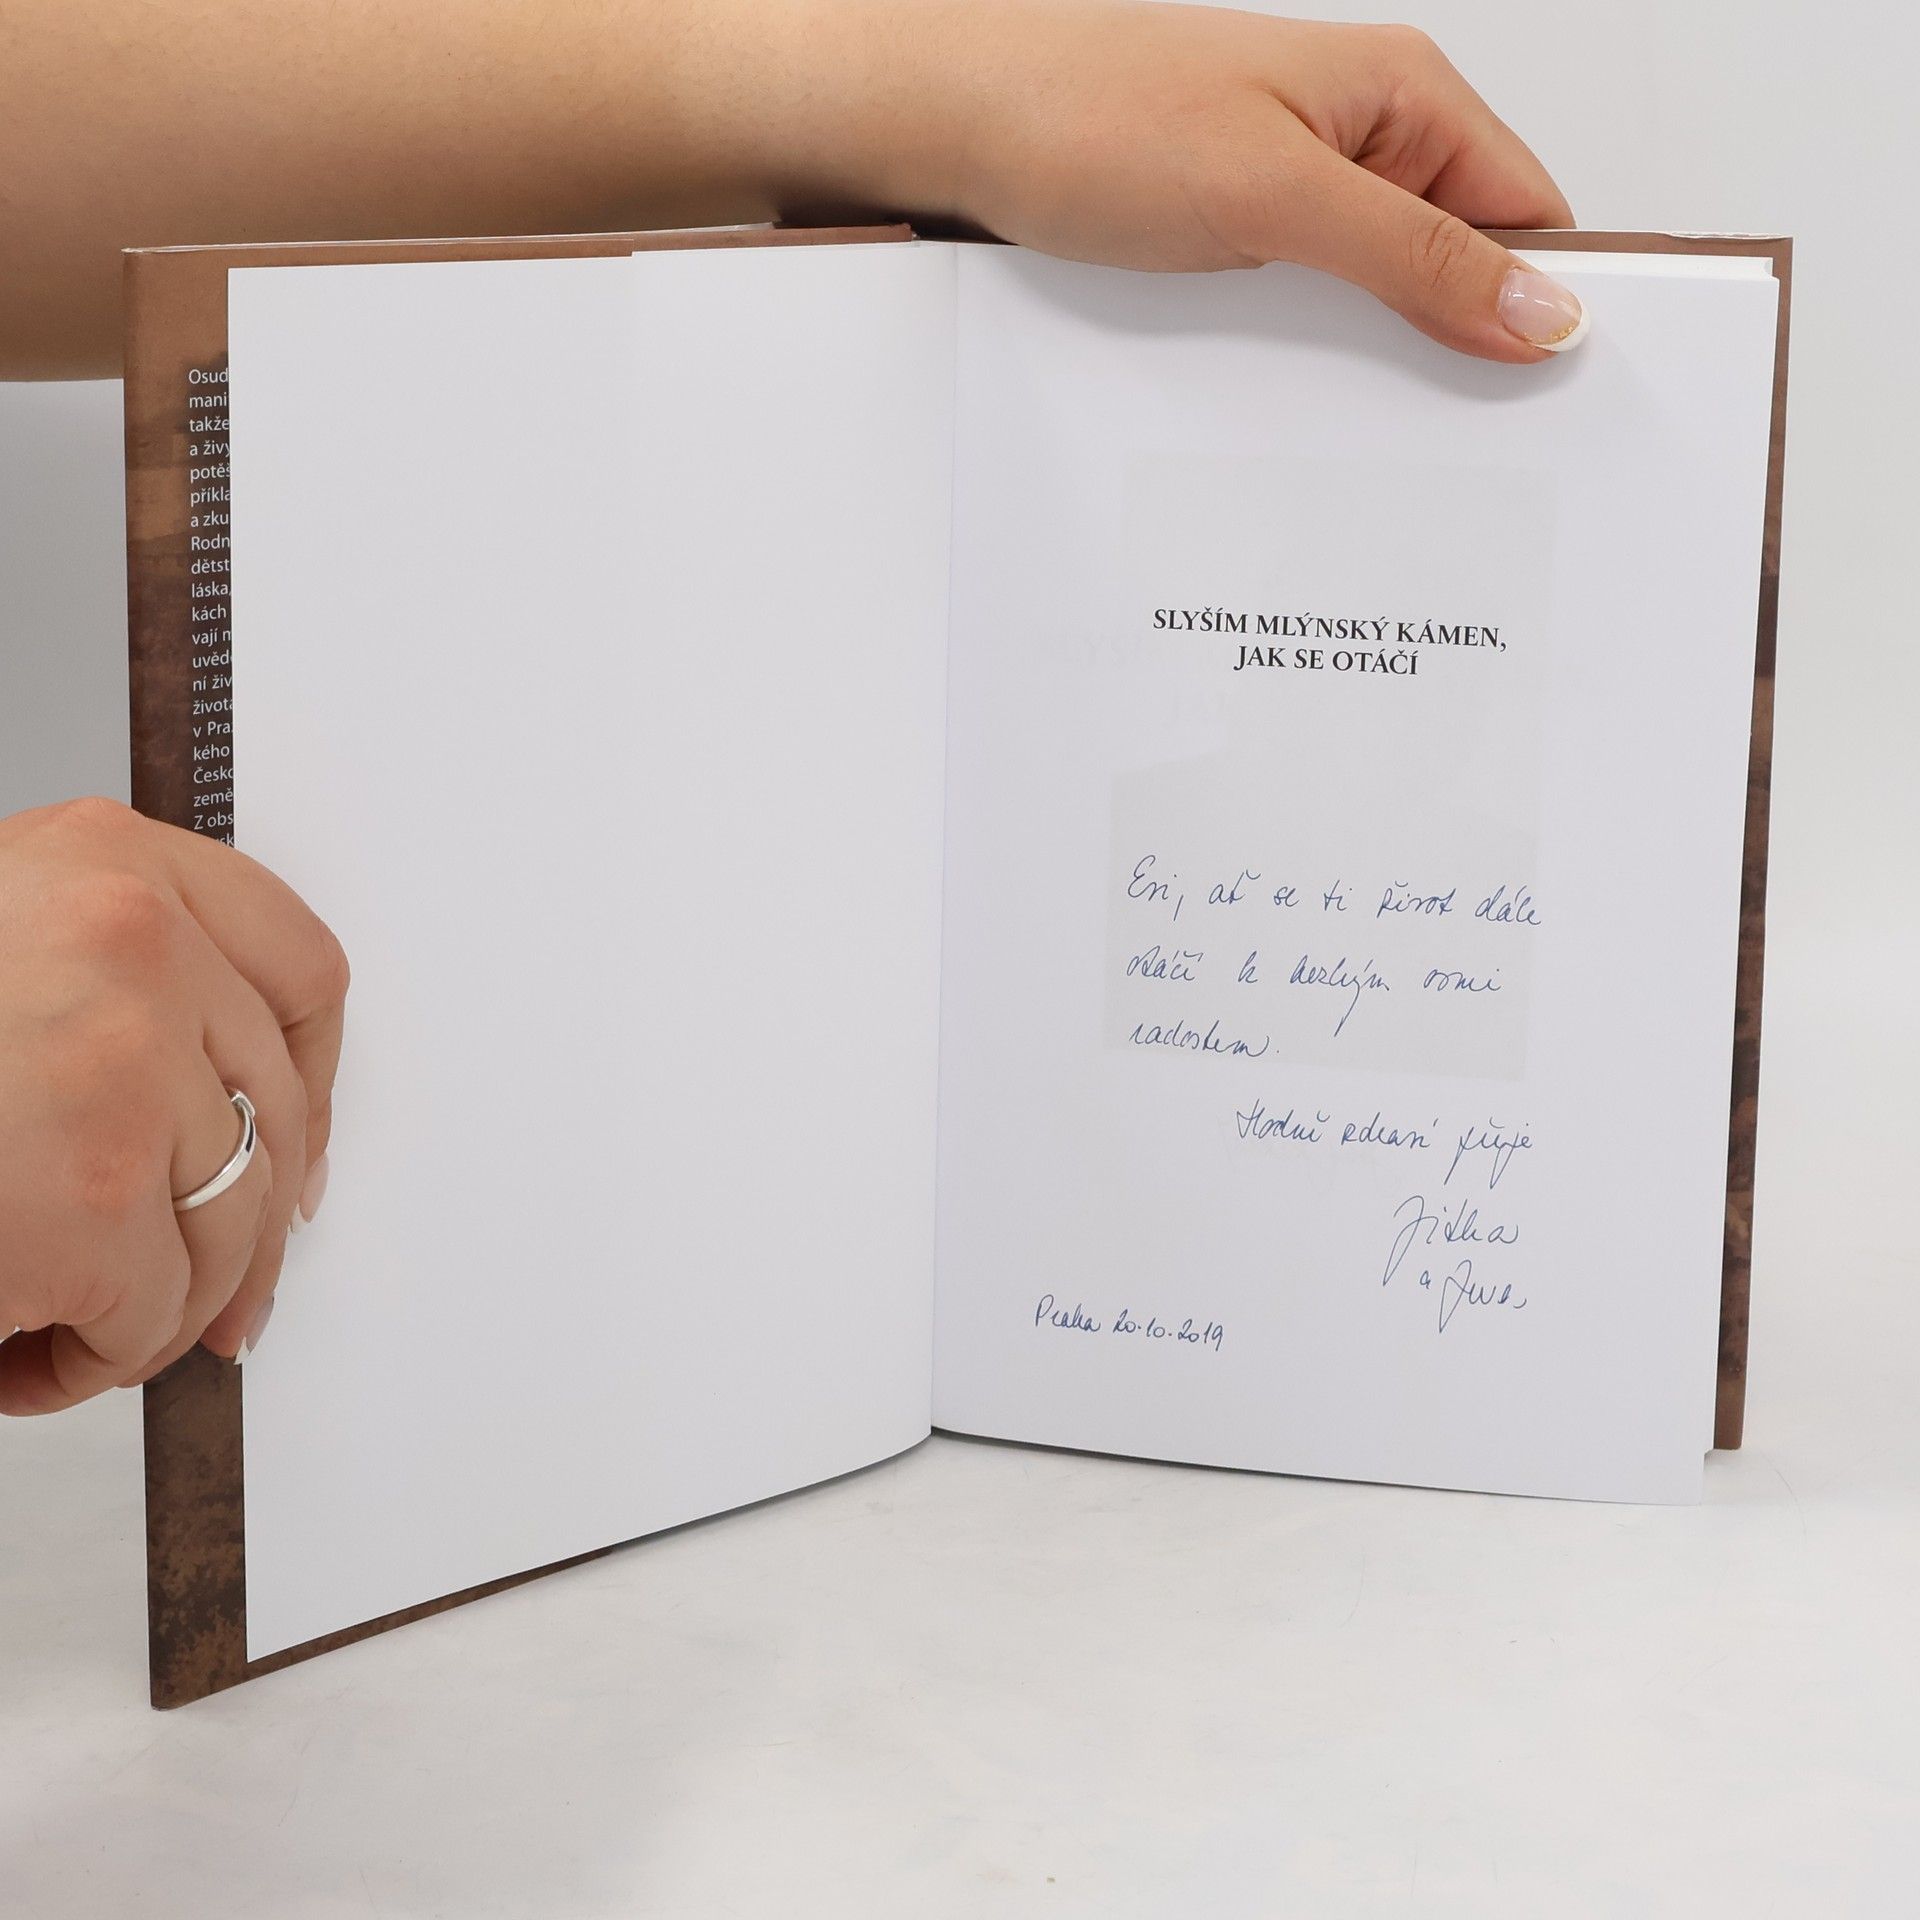 Osud
mani
takže
a živ
potěš
příkla
a zku
Rodn
dětst
láska,
kách
vají
uvědo
ní živ
života
v Pra
kého
Česko
země
Z obs
SLYŠÍM MLÝNSKÝ KÁMEN,
JAK SE OTÁČÍ
Evi, ať se ti život dále
otáčí k hezkým
radostem.
Hodně zdraví přeje
Jitka
a
Praha 20.10.2019